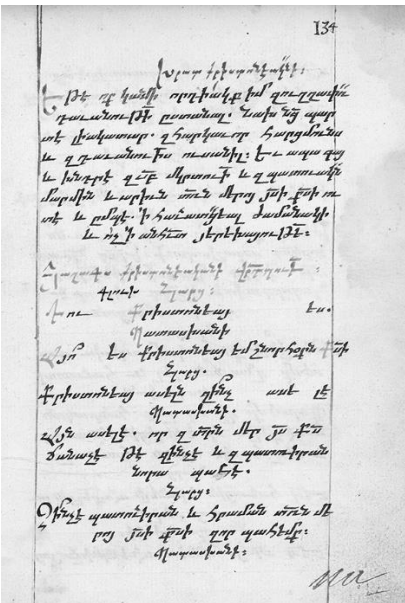 134
Խրատ քրիստոնէական։
Եթէ ոք կամի որդիակք իմ զուղղափա՟ռ
դաւանութի՟ ըստանալ. նախ նմ՟ պար
տէ լիակատար. զհարկաւոր հարցմունս
և զդաւանութիս ուսանիլ։ Եւ ապա գայ
և խնդրէ
մարմին և արիւն տն՟ մերոյ յսի՟ քսի՟ ու
տէ և ըմպէ. ի հաւատոյ ժամանակի
և ոչ ի անհտ յերեխայութե՟։
քրիստոնէական
գլուխ Հարց։
Դու Քրիստոնեայ ես.
Պատասխանի
Այո՟ ես Քրիստոնեայ եմ շնորհօքն Քսի՟
Հարց.
Քրիստոնեայ ասելն զինչ ասել է
Պատասխանի.
Այն ասել է. որ զտրն՟ մեր յս՟ քս՟
ճանաչէ թէ զինչ է և զպատուիրան
նորա պահէ.
Հարց։
Զինչ է պատուիրան և հրաման տն՟ մե
րոյ յսի՟ քսի՟ զոր պահեմք։
Պատասխանի։